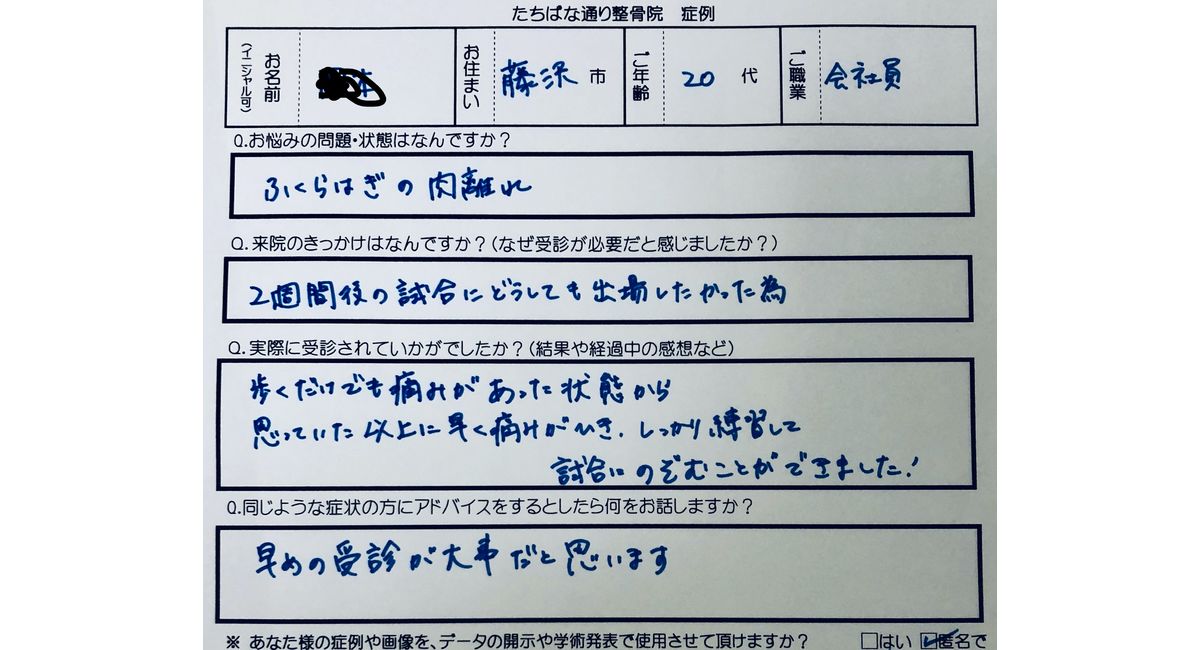 たちばな通り整骨院 症例
お名前(イニシャル可) お住まい 藤沢市 ご年齢 20代 ご職業 会社員
Q.お悩みの問題・状態はなんですか?
ふくらはぎの肉離れ
Q.来院のきっかけはなんですか?(なぜ受診が必要だと感じましたか?)
2週間後の試合にどうしても出場したかった為
Q.実際に受診されていかがでしたか?(結果や経過中の感想など)
歩くだけでも痛みがあった状態から
思っていた以上に早く痛みがひき、しっかり練習して
試合にのぞむことができました!
Q.同じような症状の方にアドバイスをするとしたら何をお話しますか?
早めの受診が大事だと思います
※ あなた様の症例や画像を、データの開示や学術発表で使用させて頂けますか? □はい ☑匿名で